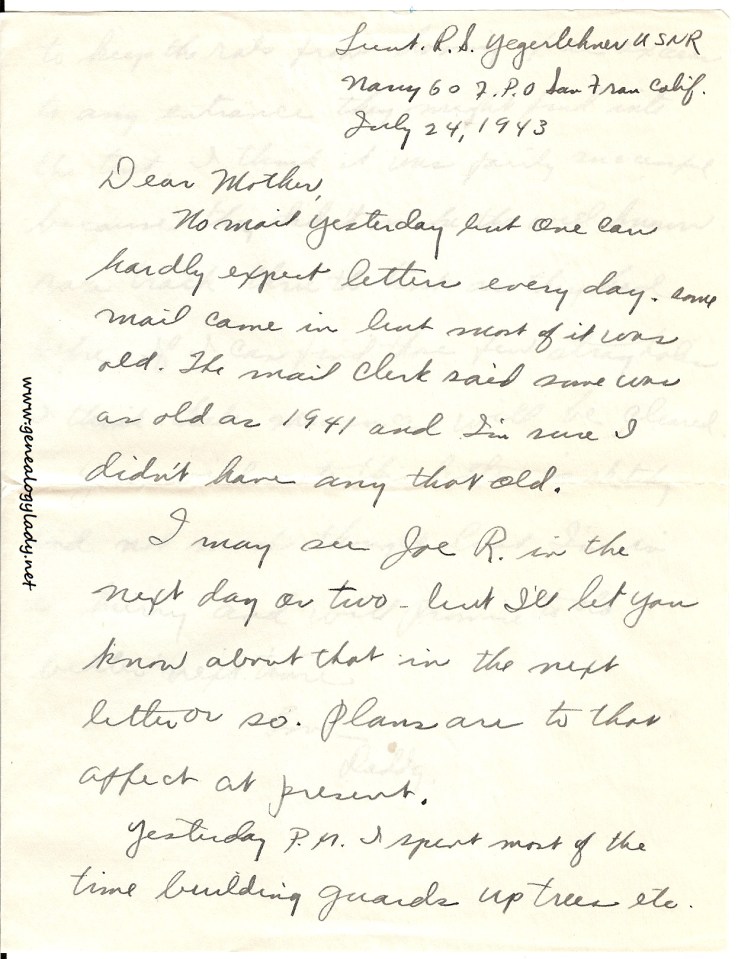 Lieut. R. S. Yegerlehner USNR
Navy 60 F.P.O San Fran Calif.
July 24, 1943
Dear Mother,
No mail yesterday but one can
hardly expect letters every day. some
mail came in but most of it was
old. The mail clerk said some was
as old as 1941 and I'm sure I
didn't have any that old.
I may see Joe R. in the
next day or two - but I'll let you
know about that in the next
letter or so. Plans are to that
affect at present.
Yesterday P.M. I spent most of the
time building guards up trees etc.
www.genealogylady.net